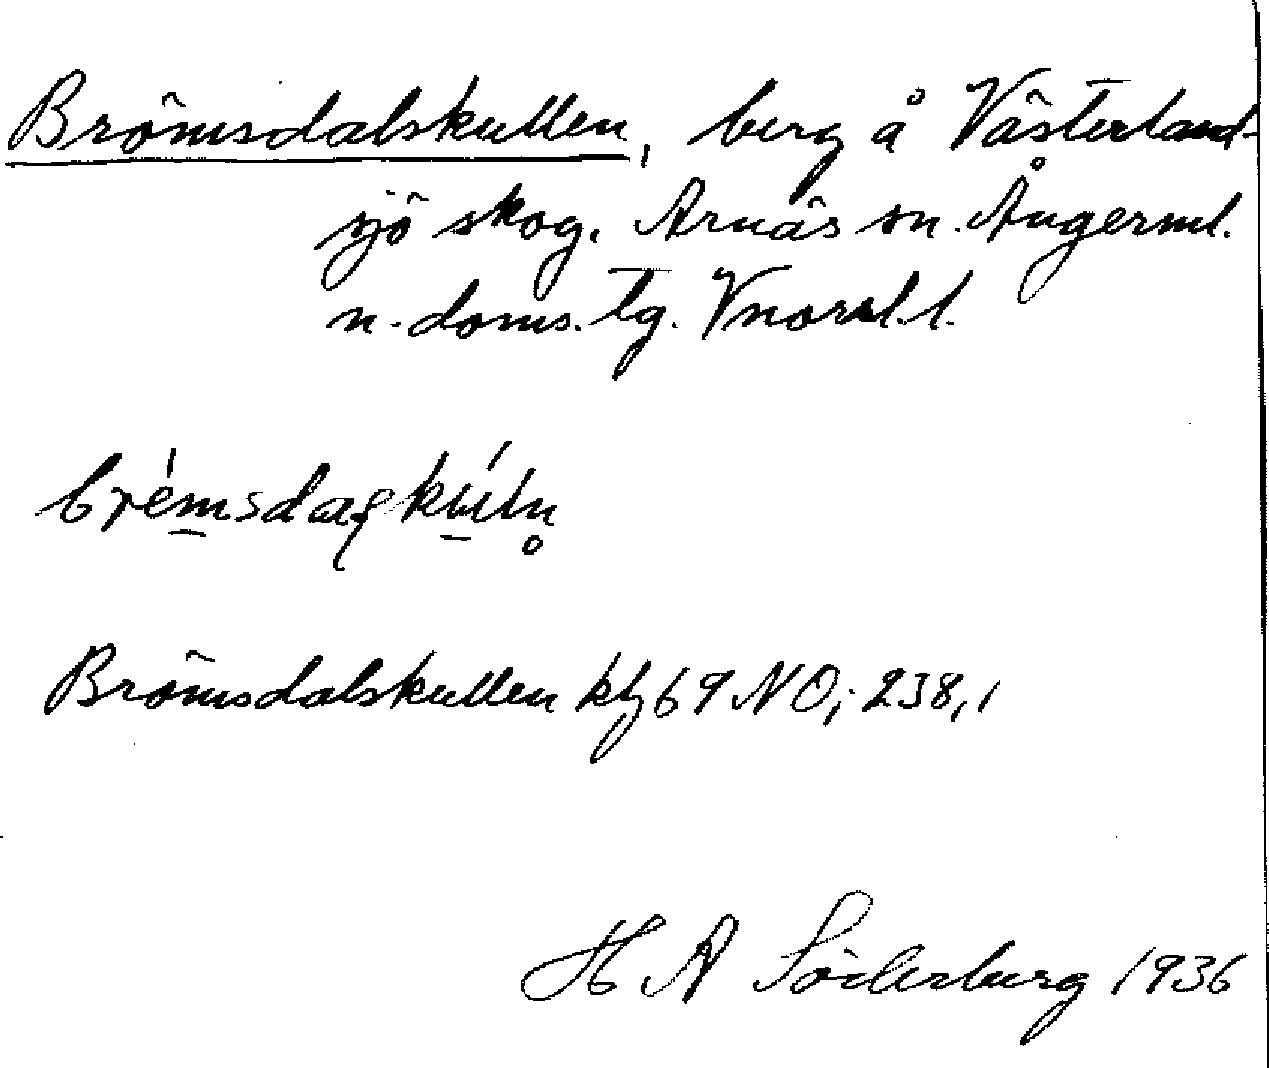 Brömsdalskullen, berg å Västerland-
sjö skog. Arnäs sn. Ångerml.
n. doms. tg. Vnorrl. l.
Brömsdalskullen kbl 69 NO; 238,1
H A Söderburg 1936